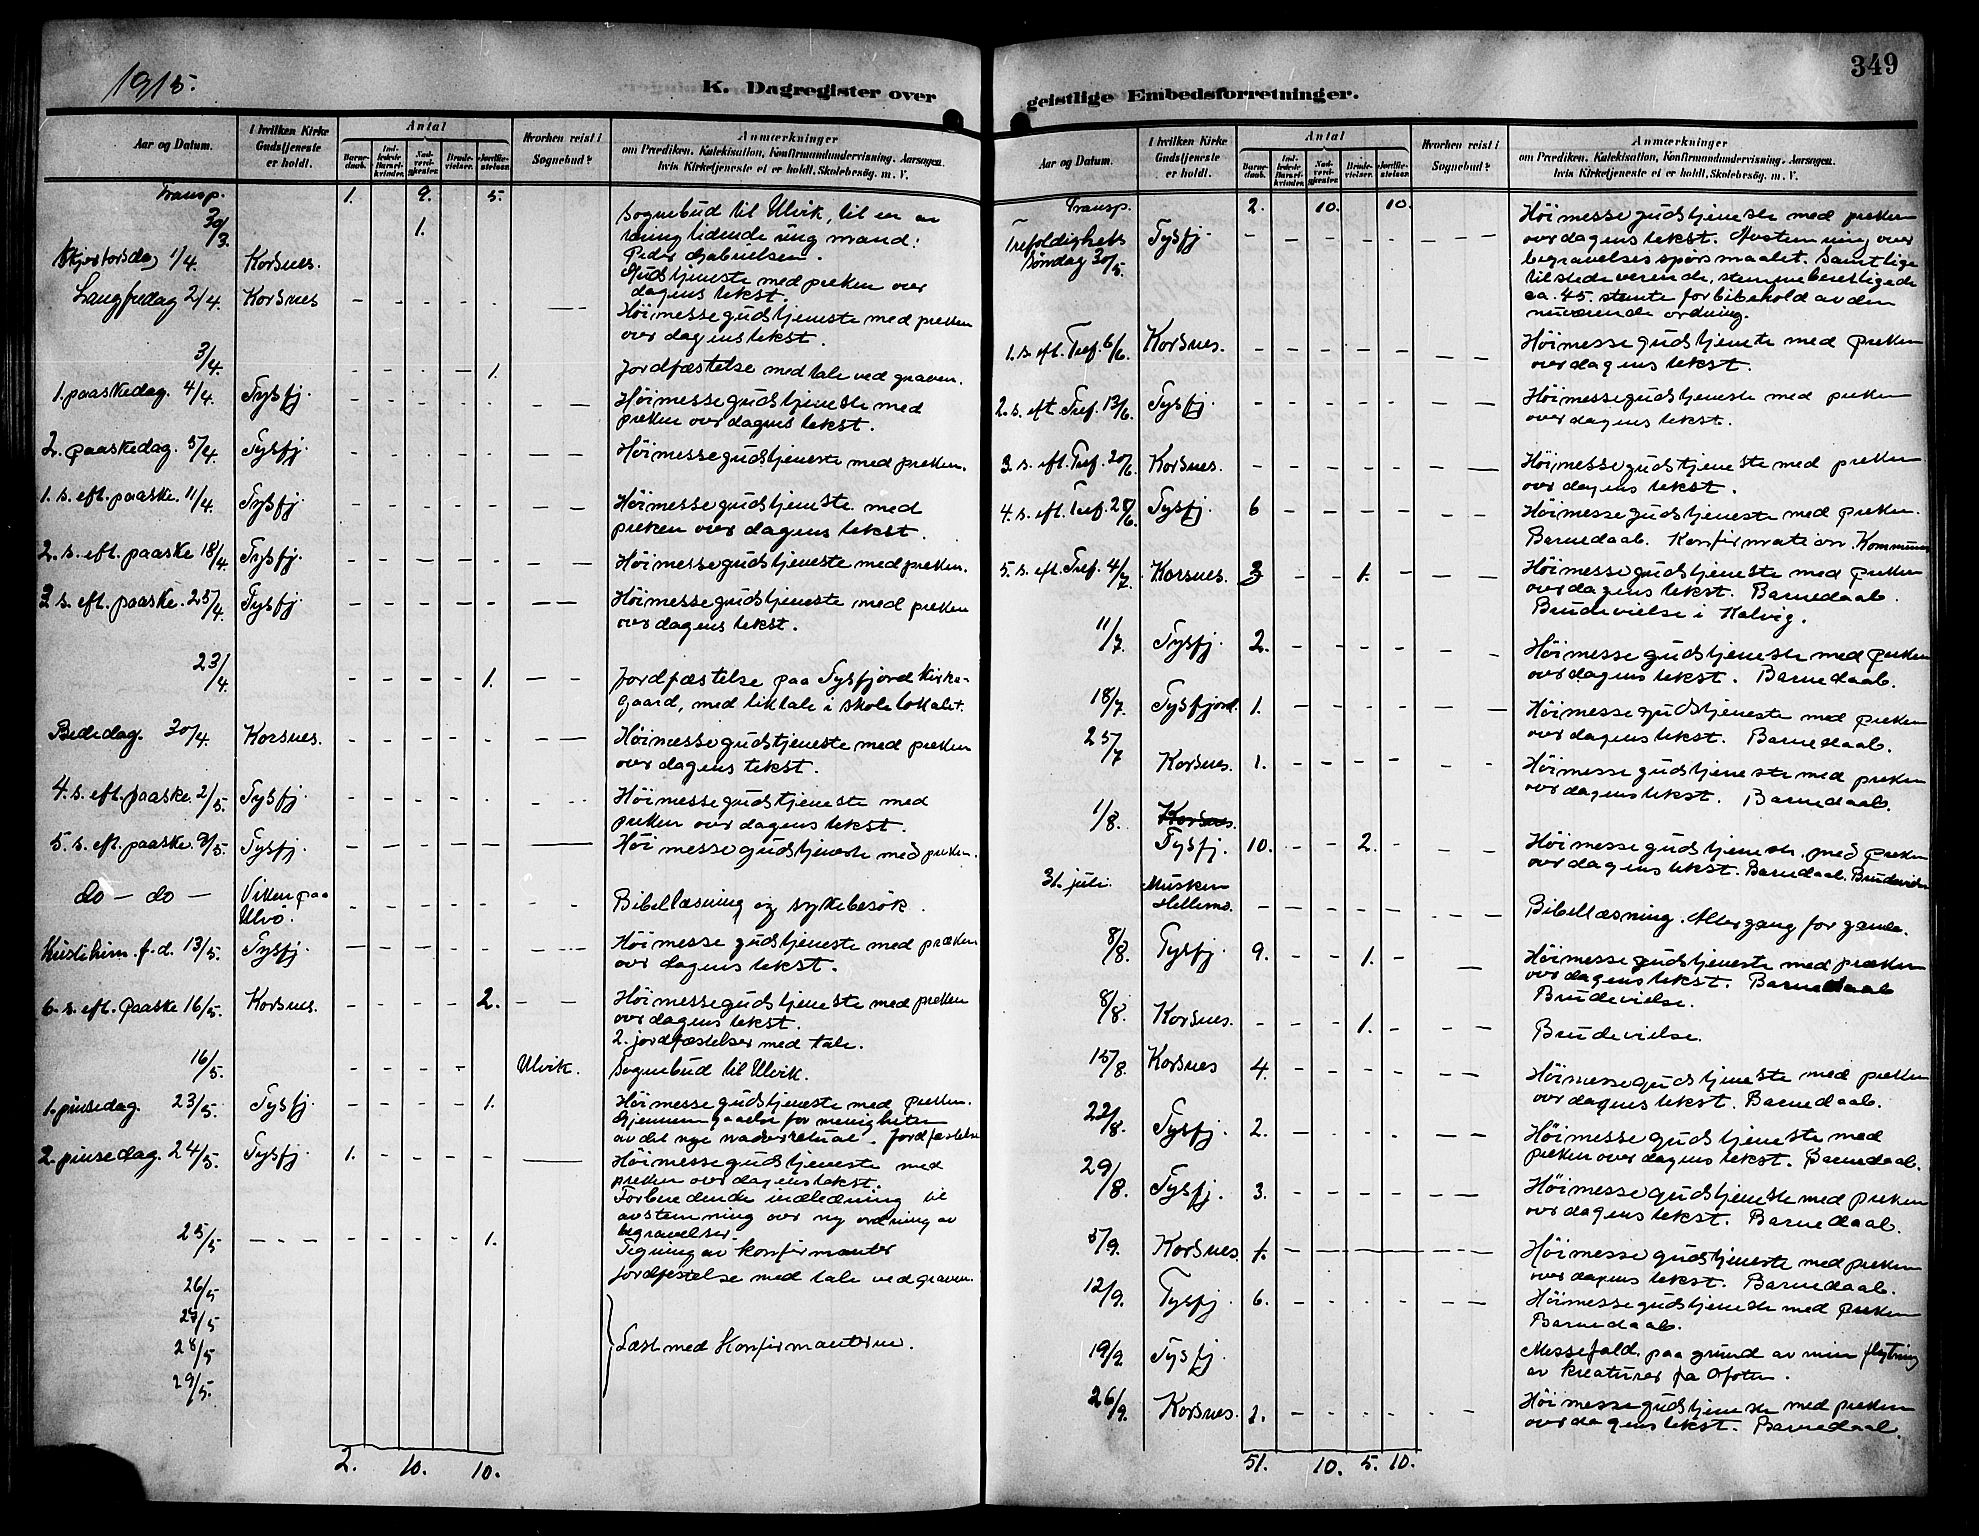 1915.
K. Dagregister over
Aar og Datum.
I hvilken Kirke Gudstjeneste er holdt.
Antal
Barnedaab.
Indledede Barselkvinder.
Nadverdgjester.
Brudevielser.
Jordfæstelser.
Hvorhen reist i Sognebud?
Anmærkninger
om Prædiken, Katekisation, Konfirmandundervisning, Aarsagen,
hvis Kirketjeneste ei er holdt, Skolebesøg. m. V.
Transp. 1. 9. 5.
30/3. 1. Sognebud til Ulvik, til en av
tæring lidende ung mand:
Peder Gabrielsen.
Skjærtorsdag 1/4. Korsnes. Gudstjeneste med preken over
dagens tekst.
Langfredag 2/4. Korsnes Høimessegudstjeneste med preken
over dagens tekst.
3/4. 1. Jordfæstelse med tale ved graven.
1. paaskedag. 4/4. Tysfj. Høimessegudstjeneste med
preken over dagens tekst.
2. paaskedag. 5/4. Tysfj. Høimessegudstjeneste med preken.
1. s. eft. paaske. 11/4. Tysfj. Høimessegudstjeneste med
preken over dagens tekst.
2. s. eft. paaske 18/4. Tysfj. Høimessegudstjeneste med preken.
3 s. eft. paaske. 25/4. Tysfj. Høimessegudstjeneste med preken
over dagens tekst.
23/4. 1. Jordfæstelse paa Tysfjord Kirke-
gaard, med liktale i skolelokalet.
Bededag. 30/4. Korsnes. Høimessegudstjeneste med preken
over dagens tekst.
4. s. eft. paaske. 2/5. Tysfj. Høimessegudstjeneste med
preken over dagens tekst.
5. s. eft. paaske. 9/5. Tysfj. Høimessegudstjeneste med preken.
do — do — Viken paa
Ulvø. Bibellæsning og sykebesøk.
Kristi him. f. d. 13/5. Tysfj. Høimessegudstjeneste med præken
over dagens tekst.
6. s. eft. paaske 16/5. Korsnes. 2. Høimessegudstjeneste med preken
over dagens tekst.
2. jordfæstelser med tale.
16/5. Ulvik. Sognebud til Ulvik.
1. pinsedag. 23/5. Tysfj. 1. Høimessegudstjeneste med preken.
Gjennemgaaelse for menigheten
av det nye nadverretual. Jordfæstelse
2. pinsedag. 24/5. Tysfj. 1. Høimessegudstjeneste med
preken over dagens tekst.
Forberedende indledning til
avstemning over ny ordning av
begravelser.
25/5 1. Tegning av konfirmanter
Jordfestelse med tale ved graven.
26/5
27/5
28/5 Læst med Konfirmanterne.
29/5.
2. 10. 10.
349
geistlige Embedsforretninger.
Aar og Datum.
I hvilken Kirke Gudstjeneste er holdt.
Antal
Barnedaab.
Indledede Barselkvinder.
Nadverdgjester.
Brudevielser.
Jordfæstelser.
Hvorhen reist i Sognebud?
Anmærkninger
om Prædiken, Katekisation, Konfirmandundervisning, Aarsagen,
hvis Kirketjeneste ei er holdt, Skolebesøg. m. V.
Transp. 2. 10. 10.
Trefoldighets
Søndag 30/5. Tysfj. Høimessegudstjeneste med preken
over dagens tekst. Avstemning over
begravelsesspørsmaalet. Samtlige
tilstedeverende, stemmeberettigede
ca. 45. stemte for bibehold av den
nuværende ordning.
1. s. eft. Tref. 6/6. Korsnes. Høimessegudstjeneste med preken
over dagens tekst.
2. s. eft Tref. 13/6. Tysfj. Høimessegudstjeneste med preken
over dagens tekst.
3 s. eft. Tref. 20/6. Korsnes. Høimessegudstjeneste med preken
over dagens tekst.
4. s. eft. Tref. 27/6. Tysfj. 6 Høimessegudstjeneste med preken.
Barnedaab. Konfirmation. Kommunion
5. s. eft. Tref. 4/7. Korsnes. 3 1. Høimessegudstjeneste med preken
over dagens tekst. Barnedaab.
Brudevielse i Kalvig.
11/7. Tysfj. 2. Høimessegudstjeneste med preken
over dagens tekst. Barnedaab.
18/7. Tysfjord. 1. Høimessegudstjeneste med preken
over dagens tekst. Barnedaab.
25/7 Korsnes. 1. Høimessegudstjeneste med preken
over dagens tekst. Barnedaab.
1/8. Korsnes.
Tysfj. 10. 2. Høimessegudstjeneste med preken
over dagens tekst. Barnedaab. Brudevielse
31. juli. Musken
Hellemo. Bibellæsning. Altergang for gamle.
8/8. Tysfj. 9. 1. Høimessegudstjeneste med præken
over dagens tekst. Barnedaab
Brudevielse.
8/8. Korsnes. 1. Brudevielse.
15/8. Korsnes 4. Høimessegudstjeneste med preken
over dagens tekst. Barnedaab.
22/8. Tysfj. 2. Høimessegudstjeneste med
preken over dagens tekst. Barnedaab.
29/8. Tysfj. 3. Høimessegudstjeneste med preken
over dagens tekst. Barnedaab.
5/9. Korsnes 1. Høimessegudstjeneste med preken
over dagens tekst. Barnedaab.
12/9. Tysfj. 6. Høimessegudstjeneste med preken
Barnedaab.
19/9 Tysfj. Messefald, paa grund av min flytning
av kreaturer fra Ofoten.
26/9. Korsnes. 2. Høimessegudstjeneste med preken
over dagens tekst. Barnedaab.
51. 10. 5. 10.